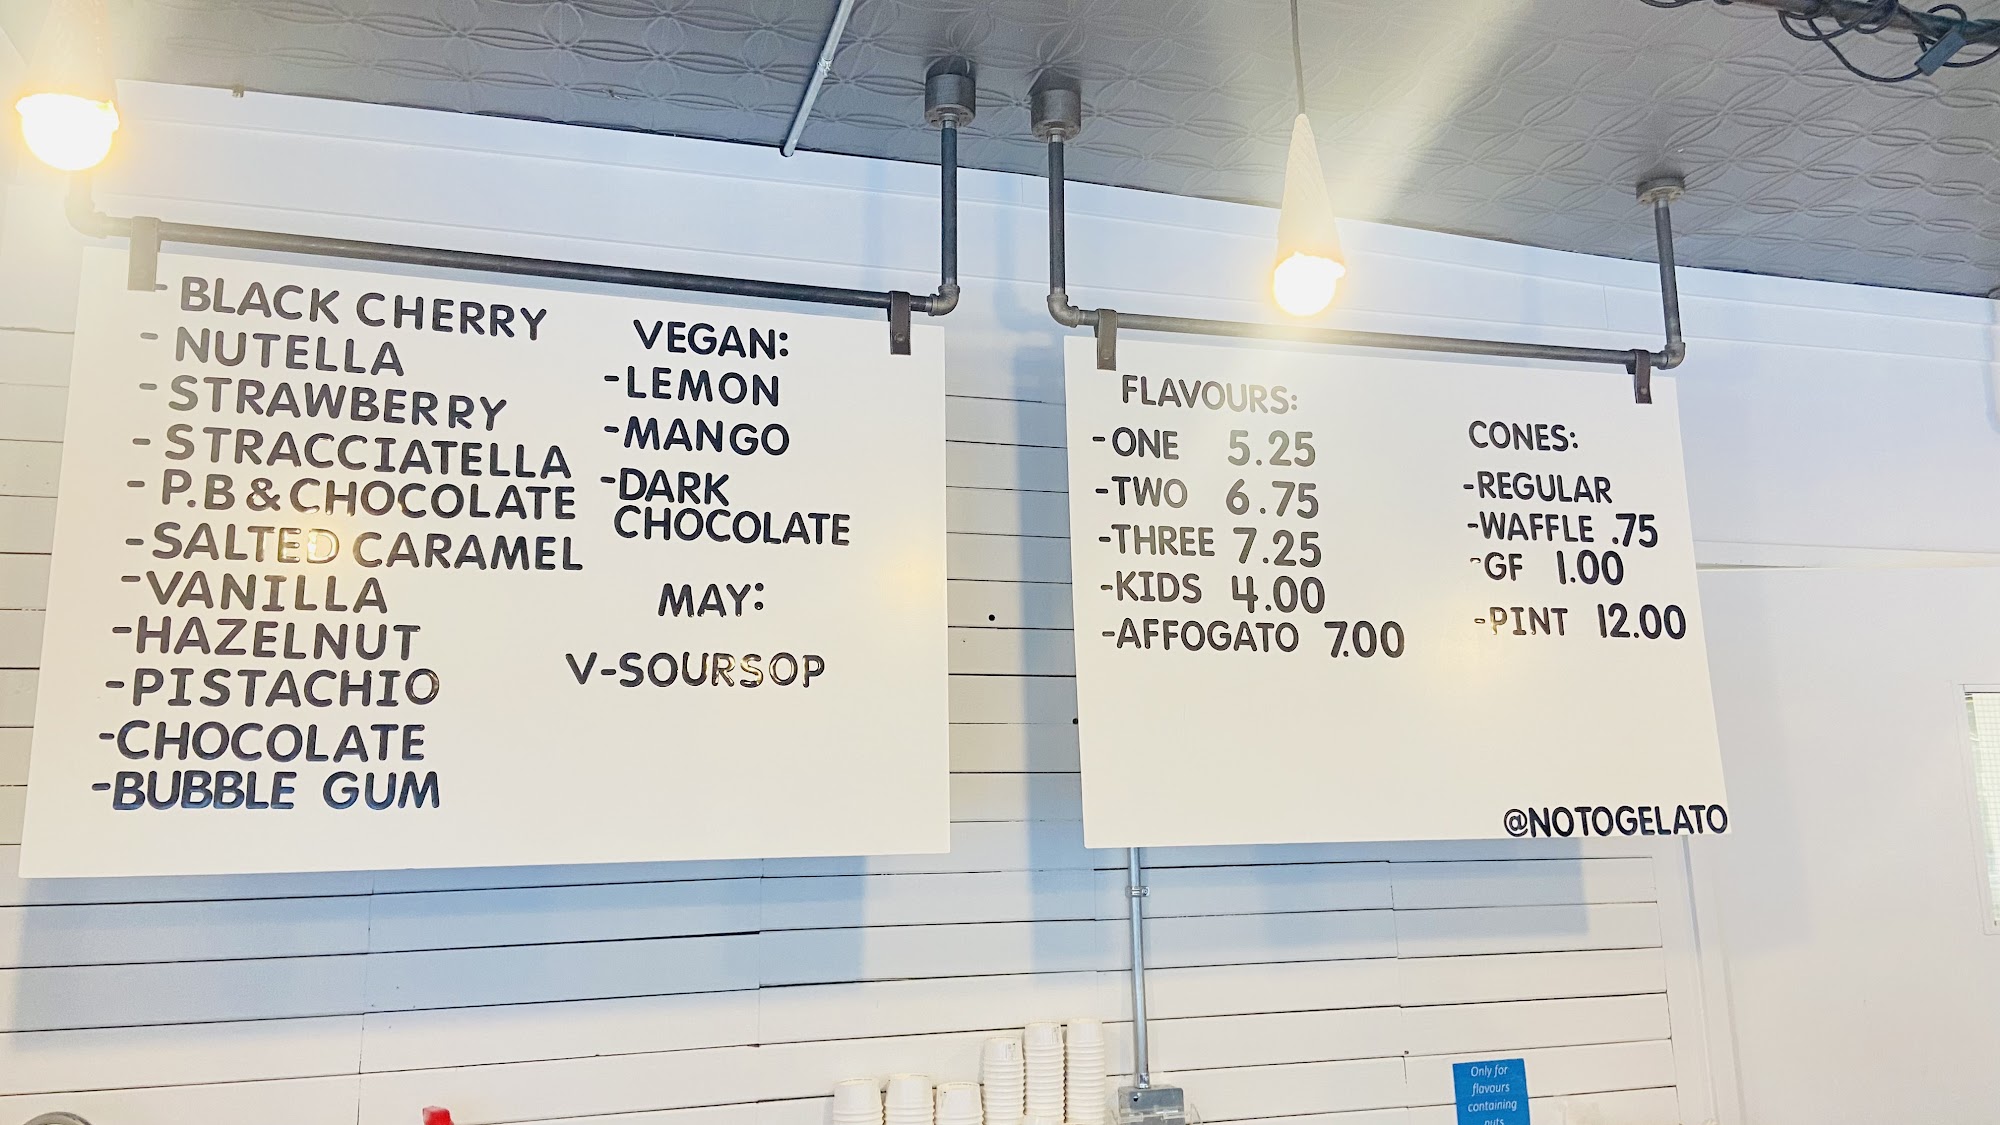 - BLACK CHERRY
- NUTELLA
- STRAWBERRY
- STRACCIATELLA
- P.B & CHOCOLATE
- SALTED CARAMEL
- VANILLA
- HAZELNUT
- PISTACHIO
- CHOCOLATE
- BUBBLE GUM
VEGAN:
- LEMON
- MANGO
- DARK
CHOCOLATE
MAY:
V-SOURSOP
FLAVOURS:
- ONE 5.25
- TWO 6.75
- THREE 7.25
- KIDS 4.00
- AFFOGATO 7.00
CONES:
- REGULAR
- WAFFLE .75
- GF 1.00
- PINT 12.00
@NOTOGELATO
Only for
flavours
containing
nuts